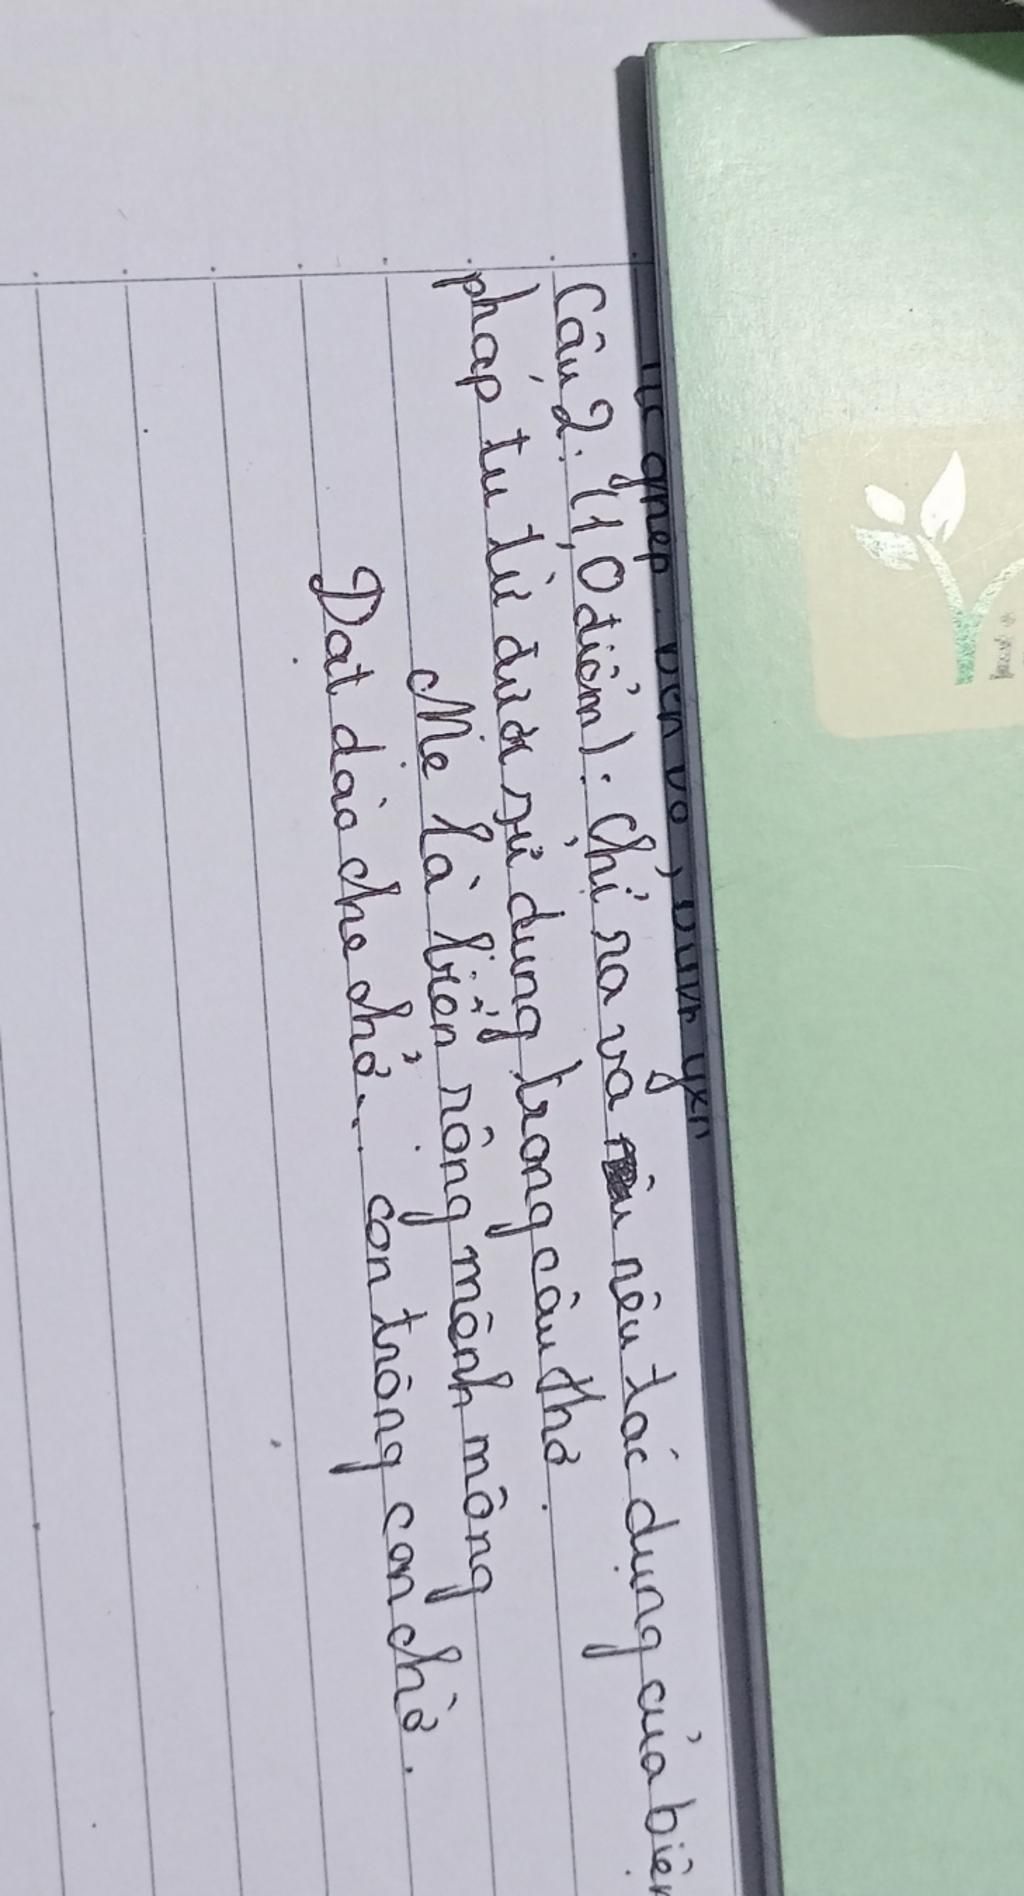 Câu 2: (1,0 điểm). Chỉ ra và nêu tác dụng của biện
pháp tu từ được sử dụng trong câu thơ.
Mẹ là biển rộng mênh mông
Dạt dào che chở... con trông con chờ.